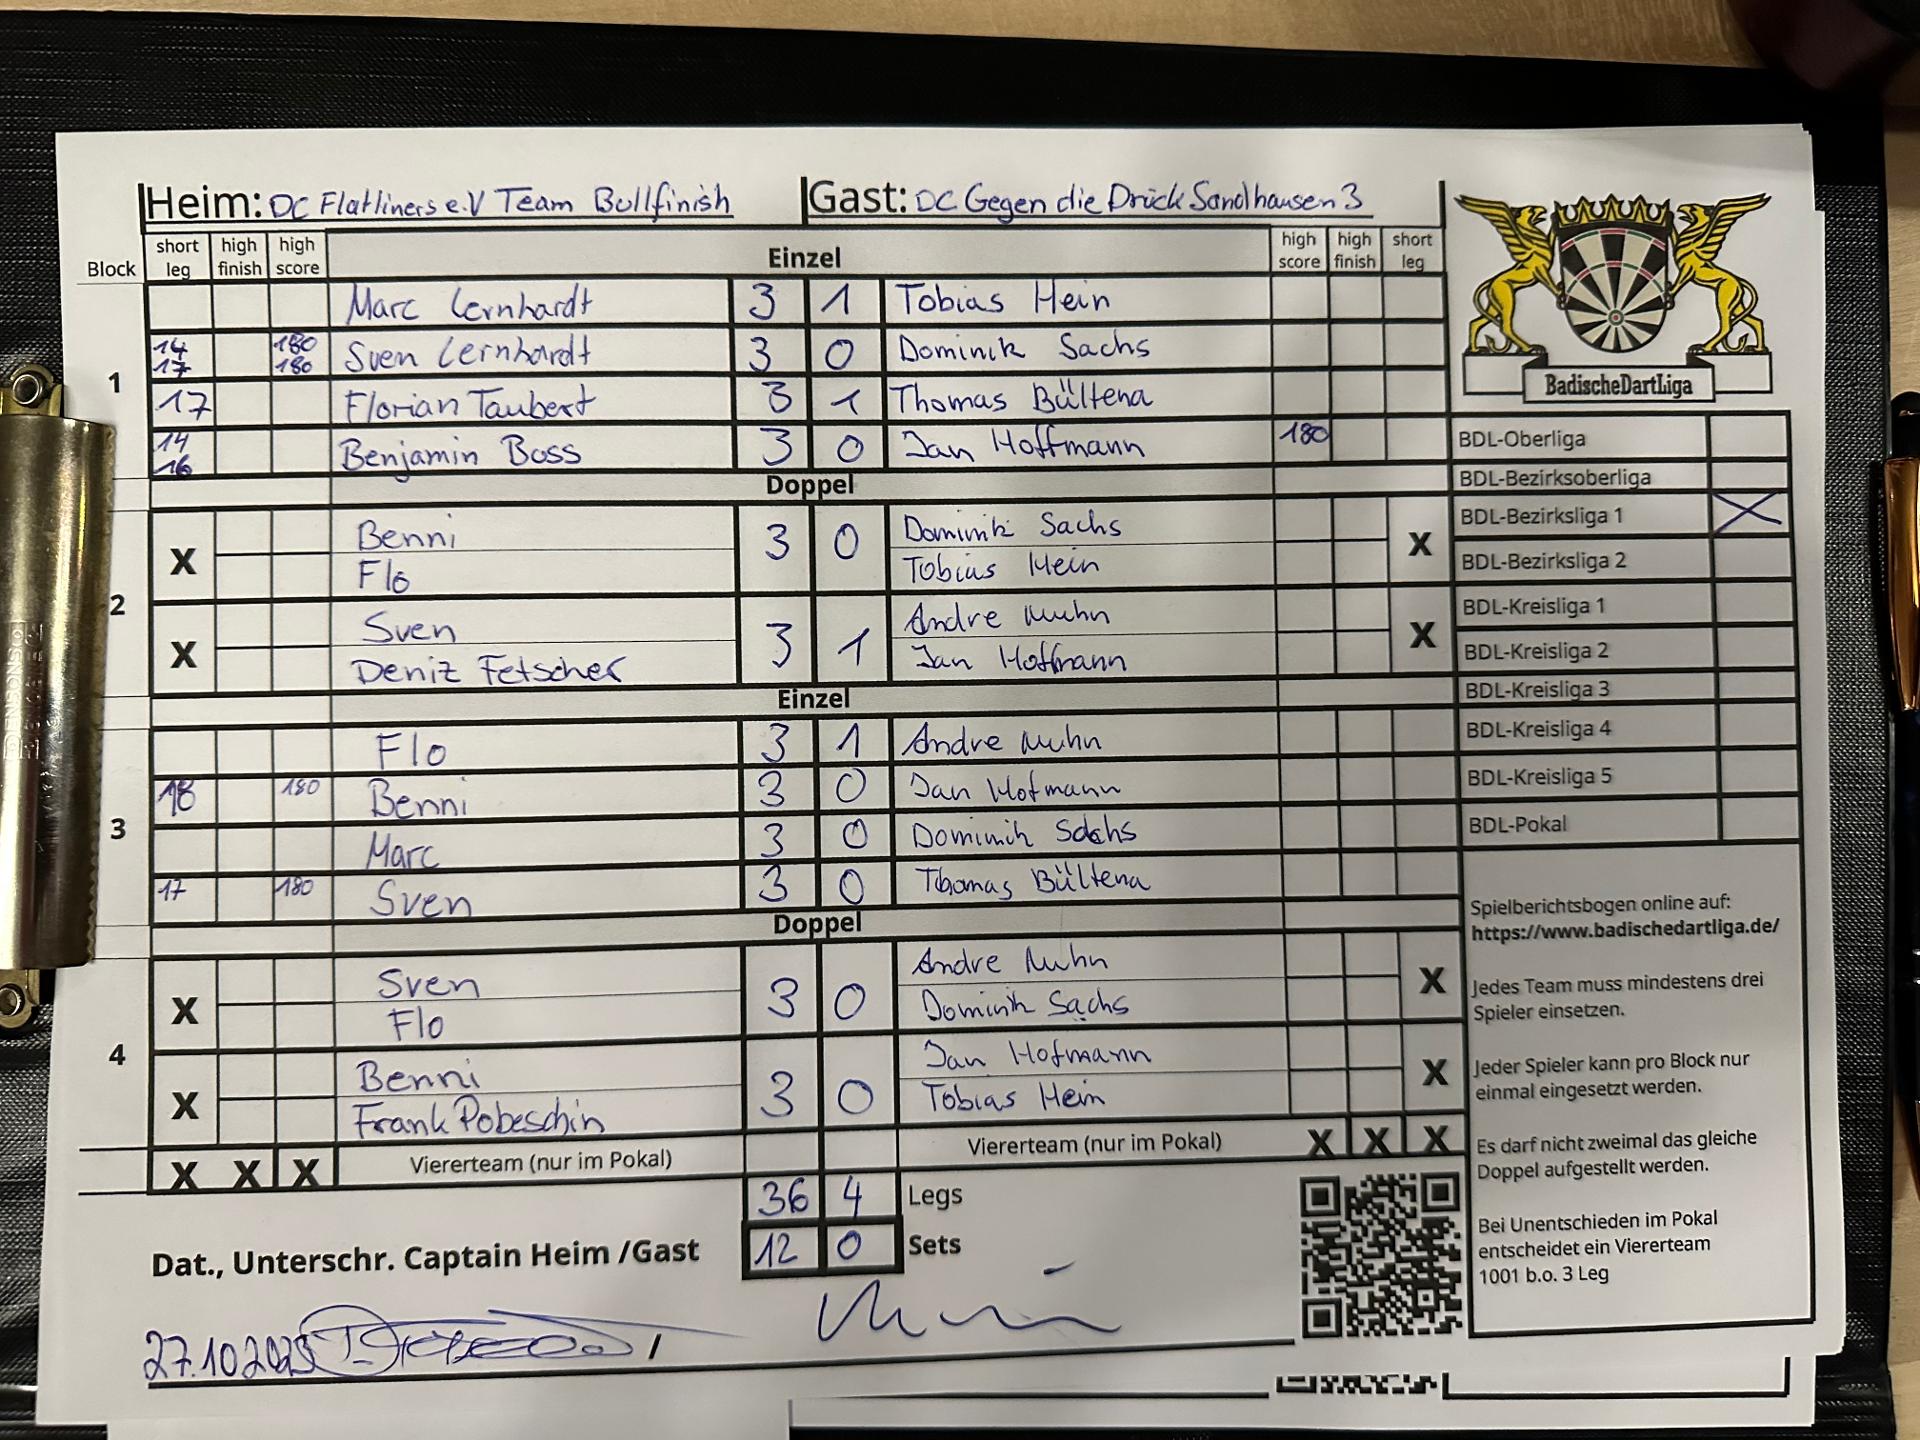 Heim: DC Flatliners e.V Team Bullfinish Gast: DC Gegen die Drück Sandhausen 3
Block short leg high finish high score Einzel high score high finish short leg
1
Marc Lernhardt 3 1 Tobias Hein
14 17 180 180 Sven Lernhardt 3 0 Dominik Sachs
17 Florian Taubert 3 1 Thomas Bültena
14 16 Benjamin Boss 3 0 Jan Hoffmann 180
Doppel
2
X Benni 3 0 Dominik Sachs X
Flo Tobias Hein
X Sven 3 1 Andre Muhn X
Deniz Fetscher Jan Hoffmann
Einzel
3
Flo 3 1 Andre Muhn
18 180 Benni 3 0 Jan Hofmann
Marc 3 0 Dominik Sachs
17 180 Sven 3 0 Thomas Bültena
Doppel
4
X Sven 3 0 Andre Muhn X
Flo Dominik Sachs
X Benni 3 0 Jan Hofmann X
Frank Pobeschin Tobias Hein
X X X Viererteam (nur im Pokal) Viererteam (nur im Pokal) X X X
36 4 Legs
12 0 Sets
Dat., Unterschr. Captain Heim /Gast
27.10.2025 /
BadischeDartLiga
BDL-Oberliga
BDL-Bezirksoberliga
BDL-Bezirksliga 1 X
BDL-Bezirksliga 2
BDL-Kreisliga 1
BDL-Kreisliga 2
BDL-Kreisliga 3
BDL-Kreisliga 4
BDL-Kreisliga 5
BDL-Pokal
Spielberichtsbogen online auf:
https://www.badischedartliga.de/
Jedes Team muss mindestens drei
Spieler einsetzen.
Jeder Spieler kann pro Block nur
einmal eingesetzt werden.
Es darf nicht zweimal das gleiche
Doppel aufgestellt werden.
Bei Unentschieden im Pokal
entscheidet ein Viererteam
1001 b.o. 3 Leg